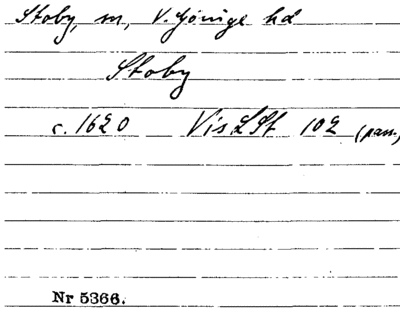 Stoby, m, V. Göinge hd
Stoby
c. 1620 VisLSt 102 (pass.)
Nr 5366.